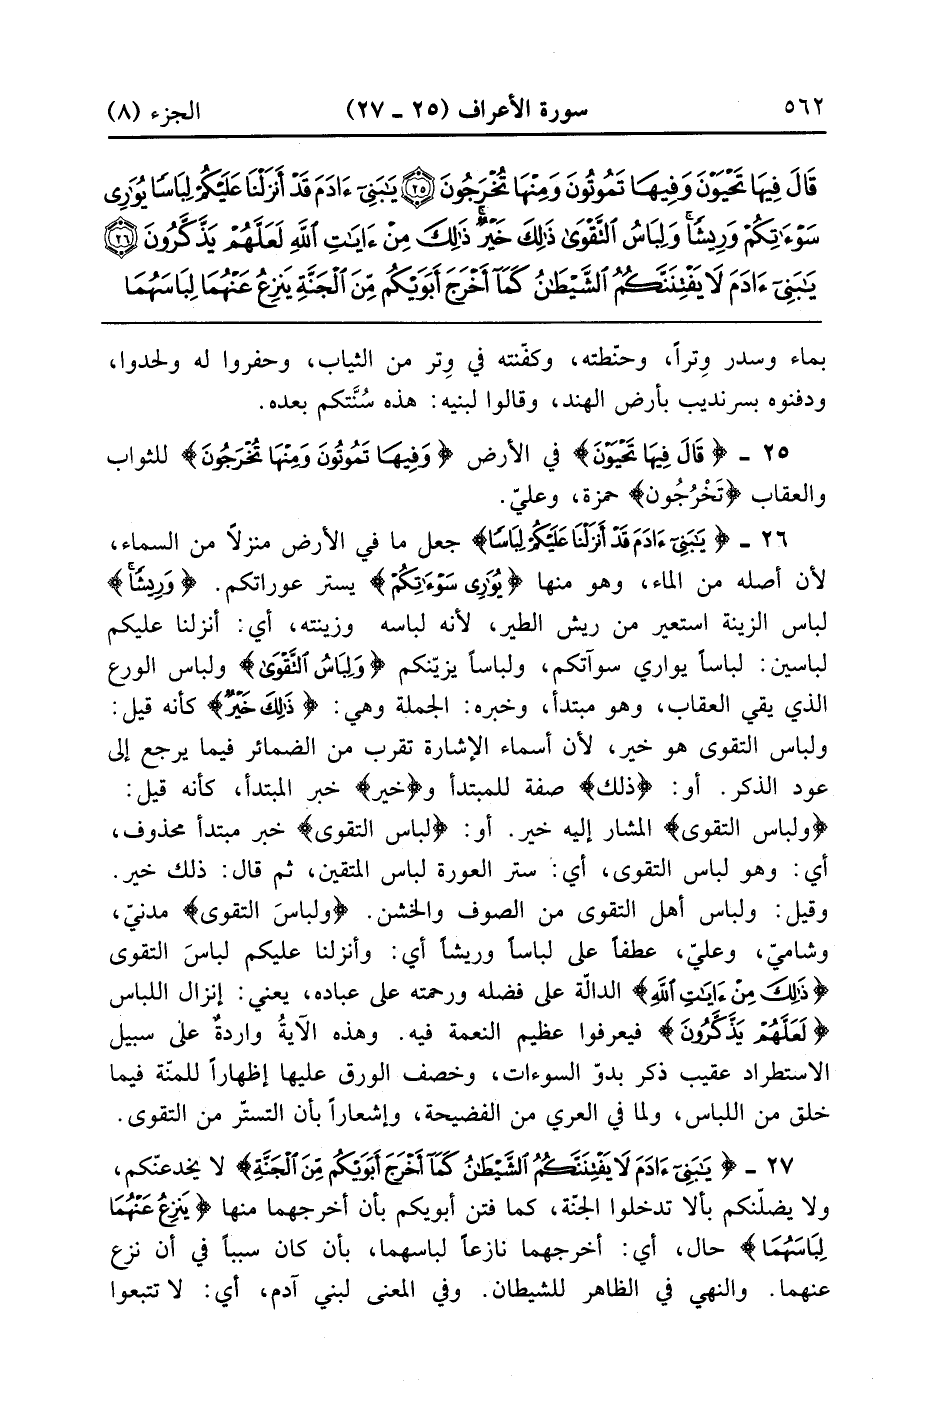 ٥٦٢ سورة الأعراف (٢٥ ـ ٢٧) الجزء (٨)
قَالَ فِيهَا تَحْيَوْنَ وَفِيهَا تَمُوتُونَ وَمِنْهَا تُخْرَجُونَ ﴿٢٥﴾ يَٰبَنِىٓ ءَادَمَ قَدْ أَنزَلْنَا عَلَيْكُمْ لِبَاسًا يُوَٰرِى
سَوْءَٰتِكُمْ وَرِيشًا ۖ وَلِبَاسُ ٱلتَّقْوَىٰ ذَٰلِكَ خَيْرٌ ۚ ذَٰلِكَ مِنْ ءَايَٰتِ ٱللَّهِ لَعَلَّهُمْ يَذَّكَّرُونَ ﴿٢٦﴾
يَٰبَنِىٓ ءَادَمَ لَا يَفْتِنَنَّكُمُ ٱلشَّيْطَٰنُ كَمَآ أَخْرَجَ أَبَوَيْكُم مِّنَ ٱلْجَنَّةِ يَنزِعُ عَنْهُمَا لِبَاسَهُمَا
بماء وسدر وِتراً، وحنّطته، وكفّنته في وِتر من الثياب، وحفروا له ولحدوا،
ودفنوه بسرنديب بأرض الهند، وقالوا لبنيه: هذه سُنَّتكم بعده.
٢٥ ـ ﴿قَالَ فِيهَا تَحْيَوْنَ﴾ في الأرض ﴿وَفِيهَا تَمُوتُونَ وَمِنْهَا تُخْرَجُونَ﴾ للثواب
والعقاب ﴿تَخْرُجُون﴾ حمزة، وعليّ.
٢٦ ـ ﴿يَٰبَنِىٓ ءَادَمَ قَدْ أَنزَلْنَا عَلَيْكُمْ لِبَاسًا﴾ جعل ما في الأرض منزلاً من السماء،
لأن أصله من الماء، وهو منها ﴿يُوَٰرِى سَوْءَٰتِكُمْ﴾ يستر عوراتكم. ﴿وَرِيشًا ۖ﴾
لباس الزينة استعير من ريش الطير، لأنه لباسه وزينته، أي: أنزلنا عليكم
لباسين: لباساً يواري سوآتكم، ولباساً يزيّنكم ﴿وَلِبَاسُ ٱلتَّقْوَىٰ﴾ ولباس الورع
الذي يقي العقاب، وهو مبتدأ، وخبره: الجملة وهي: ﴿ذَٰلِكَ خَيْرٌ ۚ﴾ كأنه قيل:
ولباس التقوى هو خير، لأن أسماء الإشارة تقرب من الضمائر فيما يرجع إلى
عود الذكر. أو: ﴿ذلك﴾ صفة للمبتدأ و﴿خير﴾ خبر المبتدأ، كأنه قيل:
﴿ولباس التقوى﴾ المشار إليه خير. أو: ﴿لباس التقوى﴾ خبر مبتدأ محذوف،
أي: وهو لباس التقوى، أي: ستر العورة لباس المتقين، ثم قال: ذلك خير.
وقيل: ولباس أهل التقوى من الصوف والخشن. ﴿ولباسَ التقوى﴾ مدنيّ،
وشاميّ، وعليّ، عطفاً على لباساً وريشاً أي: وأنزلنا عليكم لباسَ التقوى
﴿ذَٰلِكَ مِنْ ءَايَٰتِ ٱللَّهِ﴾ الدالّة على فضله ورحمته على عباده، يعني: إنزال اللباس
﴿لَعَلَّهُمْ يَذَّكَّرُونَ﴾ فيعرفوا عظيم النعمة فيه. وهذه الآيةُ واردةٌ على سبيل
الاستطراد عقيب ذكر بدوّ السوءات، وخصف الورق عليها إظهاراً للمنّة فيما
خلق من اللباس، ولما في العري من الفضيحة، وإشعاراً بأن التستّر من التقوى.
٢٧ ـ ﴿يَٰبَنِىٓ ءَادَمَ لَا يَفْتِنَنَّكُمُ ٱلشَّيْطَٰنُ كَمَآ أَخْرَجَ أَبَوَيْكُم مِّنَ ٱلْجَنَّةِ﴾ لا يخدعنّكم،
ولا يضلّنكم بألا تدخلوا الجنّة، كما فتن أبويكم بأن أخرجهما منها ﴿يَنزِعُ عَنْهُمَا
لِبَاسَهُمَا﴾ حال، أي: أخرجهما نازعاً لباسهما، بأن كان سبباً في أن نزع
عنهما. والنهي في الظاهر للشيطان. وفي المعنى لبني آدم، أي: لا تتبعوا